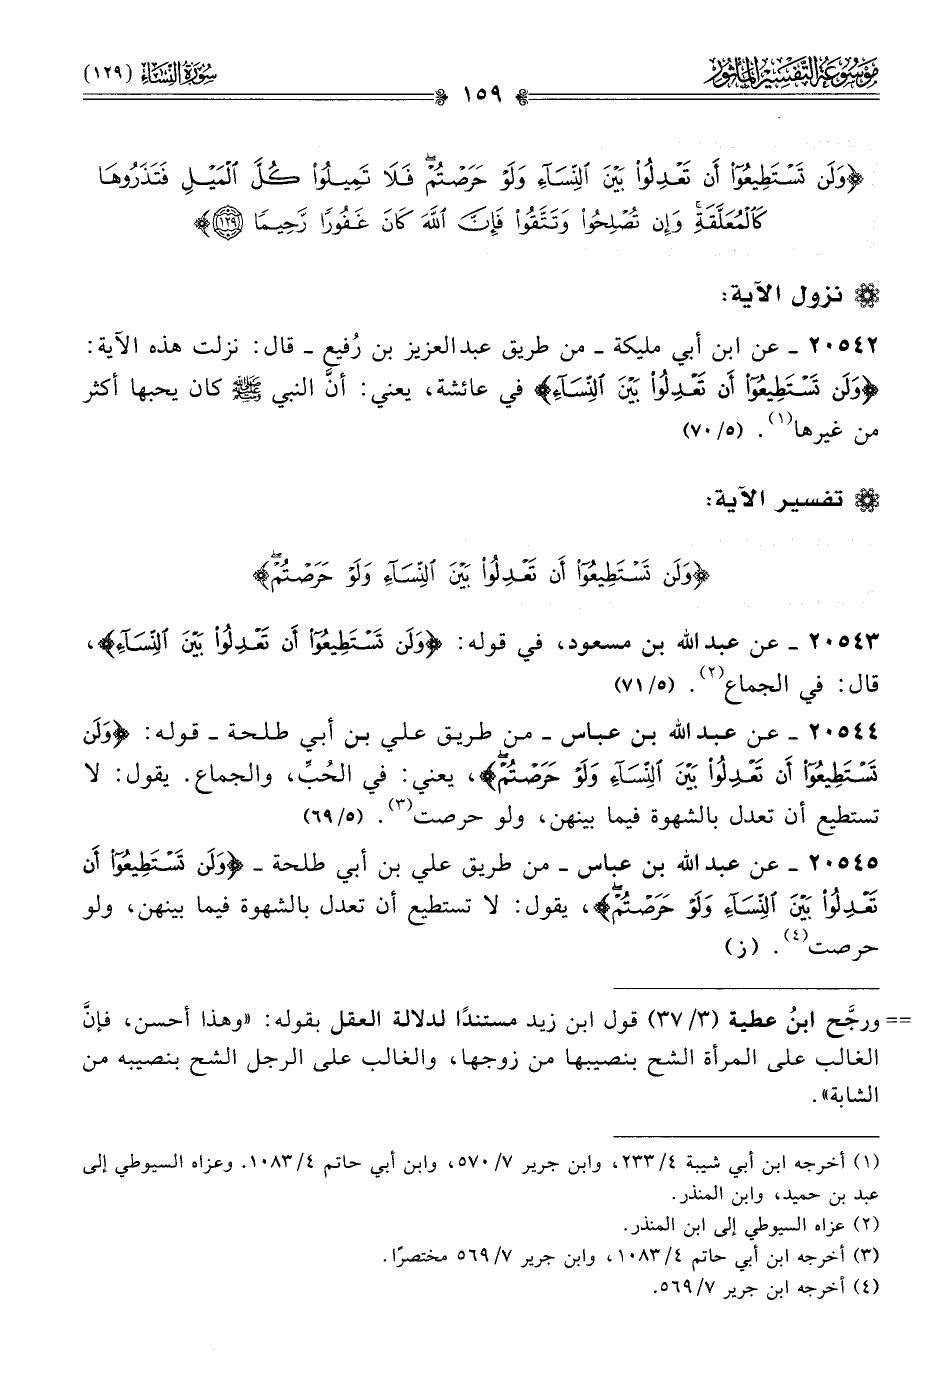 مَوْسُوعَة التَّفْسِير المَأْثُور
سُورَةُ النِّسَاءِ (١٢٩)
١٥٩
﴿وَلَن تَسْتَطِيعُوٓاْ أَن تَعْدِلُواْ بَيْنَ ٱلنِّسَآءِ وَلَوْ حَرَصْتُمْۖ فَلَا تَمِيلُواْ كُلَّ ٱلْمَيْلِ فَتَذَرُوهَا
كَٱلْمُعَلَّقَةِۚ وَإِن تُصْلِحُواْ وَتَتَّقُواْ فَإِنَّ ٱللَّهَ كَانَ غَفُورًا رَّحِيمًا ١٢٩﴾
نزول الآية:
٢٠٥٤٢ ـ عن ابن أبي مليكة ـ من طريق عبدالعزيز بن رُفيع ـ قال: نزلت هذه الآية:
﴿وَلَن تَسْتَطِيعُوٓاْ أَن تَعْدِلُواْ بَيْنَ ٱلنِّسَآءِ﴾ في عائشة، يعني: أنَّ النبي ﷺ كان يحبها أكثر
من غيرها(١). (٧٠/٥)
تفسير الآية:
﴿وَلَن تَسْتَطِيعُوٓاْ أَن تَعْدِلُواْ بَيْنَ ٱلنِّسَآءِ وَلَوْ حَرَصْتُمْۖ﴾
٢٠٥٤٣ ـ عن عبدالله بن مسعود، في قوله: ﴿وَلَن تَسْتَطِيعُوٓاْ أَن تَعْدِلُواْ بَيْنَ ٱلنِّسَآءِ﴾،
قال: في الجماع(٢). (٧١/٥)
٢٠٥٤٤ ـ عن عبدالله بن عباس ـ من طريق علي بن أبي طلحة ـ قوله: ﴿وَلَن
تَسْتَطِيعُوٓاْ أَن تَعْدِلُواْ بَيْنَ ٱلنِّسَآءِ وَلَوْ حَرَصْتُمْۖ﴾، يعني: في الحُبِّ، والجماع. يقول: لا
تستطيع أن تعدل بالشهوة فيما بينهن، ولو حرصت(٣). (٦٩/٥)
٢٠٥٤٥ ـ عن عبدالله بن عباس ـ من طريق علي بن أبي طلحة ـ ﴿وَلَن تَسْتَطِيعُوٓاْ أَن
تَعْدِلُواْ بَيْنَ ٱلنِّسَآءِ وَلَوْ حَرَصْتُمْۖ﴾، يقول: لا تستطيع أن تعدل بالشهوة فيما بينهن، ولو
حرصت(٤). (ز)
== ورجَّح ابنُ عطية (٣٧/٣) قول ابن زيد مستندًا لدلالة العقل بقوله: «وهذا أحسن، فإنَّ
الغالب على المرأة الشح بنصيبها من زوجها، والغالب على الرجل الشح بنصيبه من
الشابة».
(١) أخرجه ابن أبي شيبة ٢٣٣/٤، وابن جرير ٥٧٠/٧، وابن أبي حاتم ١٠٨٣/٤. وعزاه السيوطي إلى
عبد بن حميد، وابن المنذر.
(٢) عزاه السيوطي إلى ابن المنذر.
(٣) أخرجه ابن أبي حاتم ١٠٨٣/٤، وابن جرير ٥٦٩/٧ مختصرًا.
(٤) أخرجه ابن جرير ٥٦٩/٧.